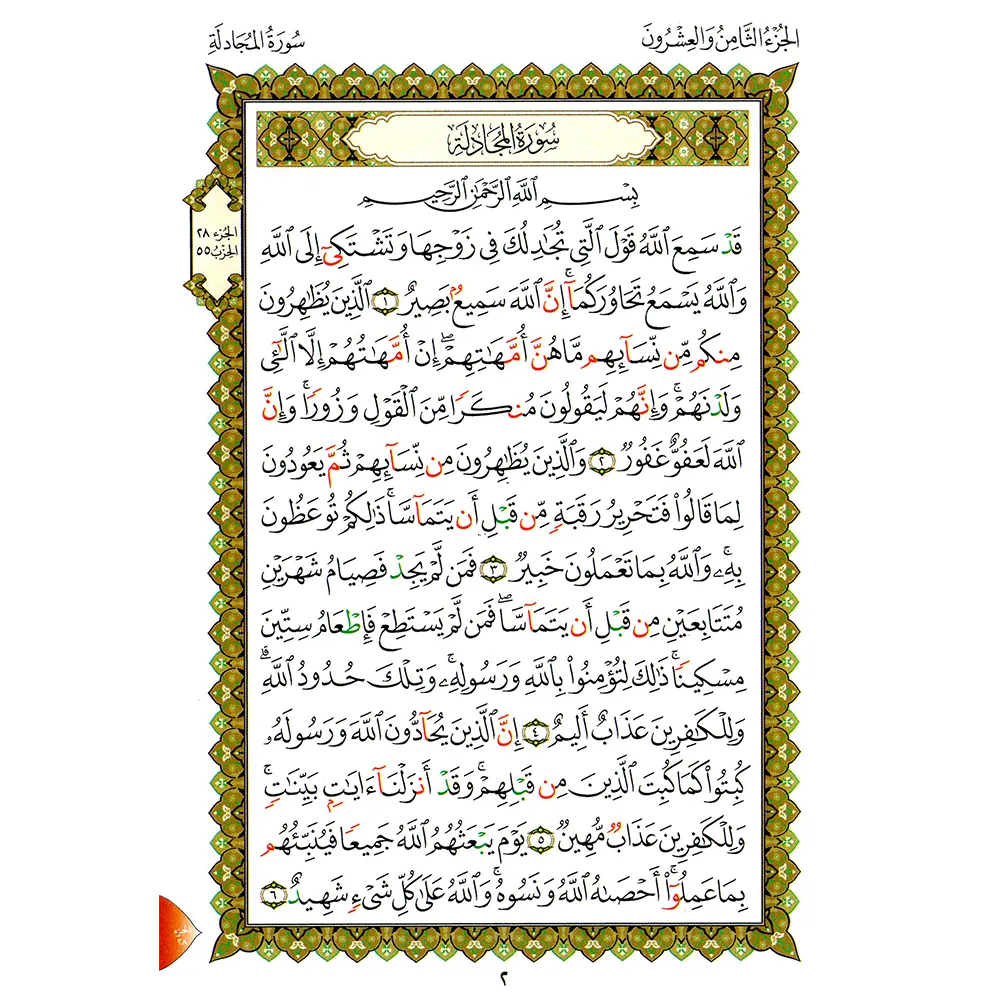 الجُزْءُ الثَّامِنُ وَالعِشْرُونَ
سُورَةُ المُجَادلَةِ
سُورَةُ المُجَادِلَةِ
الجزء ٢٨
الحزب ٥٥
بِسْمِ ٱللَّهِ ٱلرَّحْمَٰنِ ٱلرَّحِيمِ
قَدْ سَمِعَ ٱللَّهُ قَوْلَ ٱلَّتِي تُجَٰدِلُكَ فِي زَوْجِهَا وَتَشْتَكِيٓ إِلَى ٱللَّهِ
وَٱللَّهُ يَسْمَعُ تَحَاوُرَكُمَآۚ إِنَّ ٱللَّهَ سَمِيعُۢ بَصِيرٌ ١ ٱلَّذِينَ يُظَٰهِرُونَ
مِنكُم مِّن نِّسَآئِهِم مَّا هُنَّ أُمَّهَٰتِهِمْۖ إِنْ أُمَّهَٰتُهُمْ إِلَّا ٱلَّٰٓـِٔي
وَلَدْنَهُمْۚ وَإِنَّهُمْ لَيَقُولُونَ مُنكَرًا مِّنَ ٱلْقَوْلِ وَزُورًاۚ وَإِنَّ
ٱللَّهَ لَعَفُوٌّ غَفُورٌ ٢ وَٱلَّذِينَ يُظَٰهِرُونَ مِن نِّسَآئِهِمْ ثُمَّ يَعُودُونَ
لِمَا قَالُوا۟ فَتَحْرِيرُ رَقَبَةٍ مِّن قَبْلِ أَن يَتَمَآسَّاۚ ذَٰلِكُمْ تُوعَظُونَ
بِهِۦۚ وَٱللَّهُ بِمَا تَعْمَلُونَ خَبِيرٌ ٣ فَمَن لَّمْ يَجِدْ فَصِيَامُ شَهْرَيْنِ
مُتَتَابِعَيْنِ مِن قَبْلِ أَن يَتَمَآسَّاۖ فَمَن لَّمْ يَسْتَطِعْ فَإِطْعَامُ سِتِّينَ
مِسْكِينًاۚ ذَٰلِكَ لِتُؤْمِنُوا۟ بِٱللَّهِ وَرَسُولِهِۦۚ وَتِلْكَ حُدُودُ ٱللَّهِۗ
وَلِلْكَٰفِرِينَ عَذَابٌ أَلِيمٌ ٤ إِنَّ ٱلَّذِينَ يُحَآدُّونَ ٱللَّهَ وَرَسُولَهُۥ
كُبِتُوا۟ كَمَا كُبِتَ ٱلَّذِينَ مِن قَبْلِهِمْۚ وَقَدْ أَنزَلْنَآ ءَايَٰتٍۭ بَيِّنَٰتٍۚ
وَلِلْكَٰفِرِينَ عَذَابٌ مُّهِينٌ ٥ يَوْمَ يَبْعَثُهُمُ ٱللَّهُ جَمِيعًا فَيُنَبِّئُهُم
بِمَا عَمِلُوٓا۟ۚ أَحْصَىٰهُ ٱللَّهُ وَنَسُوهُۚ وَٱللَّهُ عَلَىٰ كُلِّ شَىْءٍ شَهِيدٌ ٦
جزء
٢٨
٢